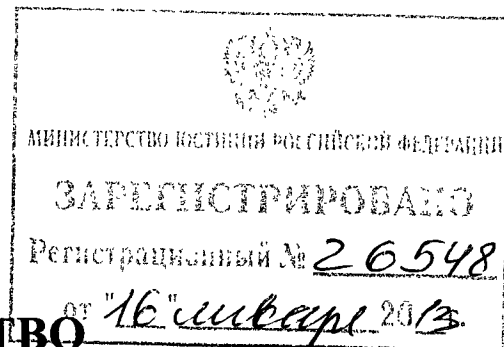 МИНИСТЕРСТВО ЮСТИЦИИ РОССИЙСКОЙ ФЕДЕРАЦИИ
ЗАРЕГИСТРИРОВАНО
Регистрационный № 26548
от "16" января 2013.
ТВО